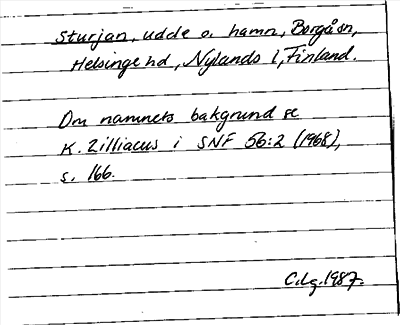 Sturjan, udde o. hamn, Borgåsn,
Helsinge hd, Nylands l, Finland.
Om namnets bakgrund se
K. Zilliacus i SNF 56:2 (1968),
s. 166.
C.Lg. 1987.